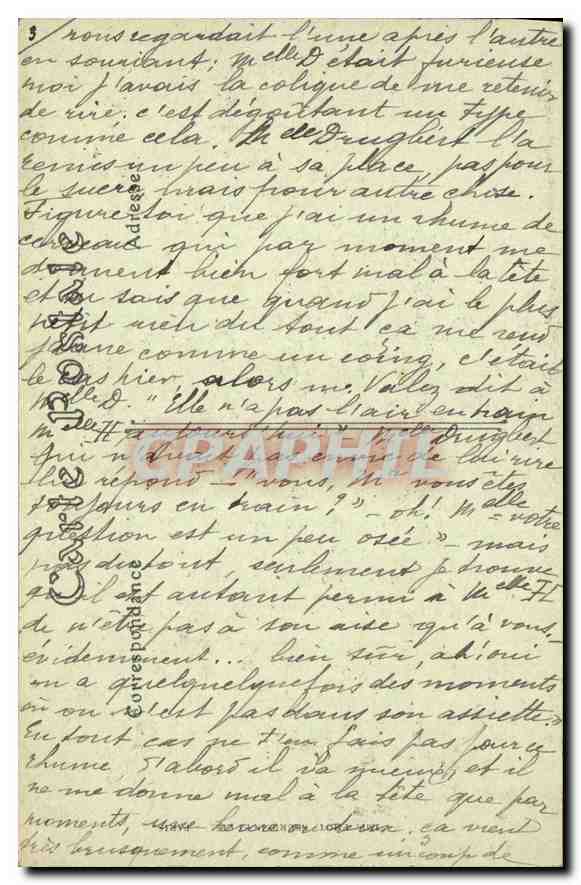 3/ nous regardait l'une après l'autre
en souriant; Melle D était furieuse
moi j'avais la colique de me retenir
de rire. c'est dégoûtant un type
comme cela. Melle Drugbert l'a
remis un peu à sa place, pas pour
le sucre, mais pour autre chose.
Figure toi que j'ai un rhume de
cerveau qui par moment me
donnent bien fort mal à la tête
et tu sais que quand j'ai le plus
petit rien du tout ca me rend
jaune comme un coing, c'était
le cas hier, alors mr. Villez dit à
Melle D. "Elle n'a pas l'air en train
Melle H aujourd'hui" Melle Drugbert
qui n'avait pas envie de lui rire
lui répond - "vous, Mr vous êtes
toujours en train?" - oh! Melle votre
question est un peu osée" - mais
pas du tout, seulement je trouve
qu'il est autant permi à Melle H
de n'être pas à son aise qu'à vous.
évidemment... bien sûr, ah! oui
on a quelquefois des moments
où on n'est pas dans son assiette."
En tout cas ne t'en fais pas pour ce
rhume, d'abord il va mieux, et il
ne me donne mal à la tête que par
moments, une heure ou deux, ca vient
très brusquement, comme un coup de
Carte Postale
Adresse
Correspondance
CPAPHIL